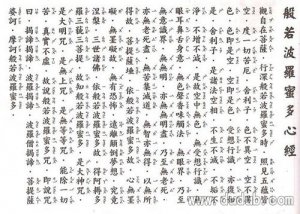 般若波羅蜜多心經
觀自在菩薩。行深般若波羅蜜多時。照見五蘊皆
空。度一切苦厄。舍利子。色不異空。空不異
色。色即是空。空即是色。受想行識。亦復如
是。舍利子。是諸法空相。不生不滅。不垢不
淨。不增不減。是故空中無色。無受想行識。無
眼耳鼻舌身意。無色聲香味觸法。無眼界。乃至
無意識界。無無明。亦無無明盡。乃至無老死。
亦無老死盡。無苦集滅道。無智亦無得。以無所
得故。菩提薩埵。依般若波羅蜜多故。心無罣
礙。無罣礙故。無有恐怖。遠離顛倒夢想。究竟
涅槃。三世諸佛。依般若波羅蜜多故。得阿耨多
羅三藐三菩提。故知般若波羅蜜多。是大神咒。
是大明咒。是無上咒。是無等等咒。能除一切
苦。真實不虛。故說般若波羅蜜多咒。即說咒
曰。揭諦揭諦。波羅揭諦。波羅僧揭諦。菩提薩
婆訶。摩訶般若波羅蜜多。